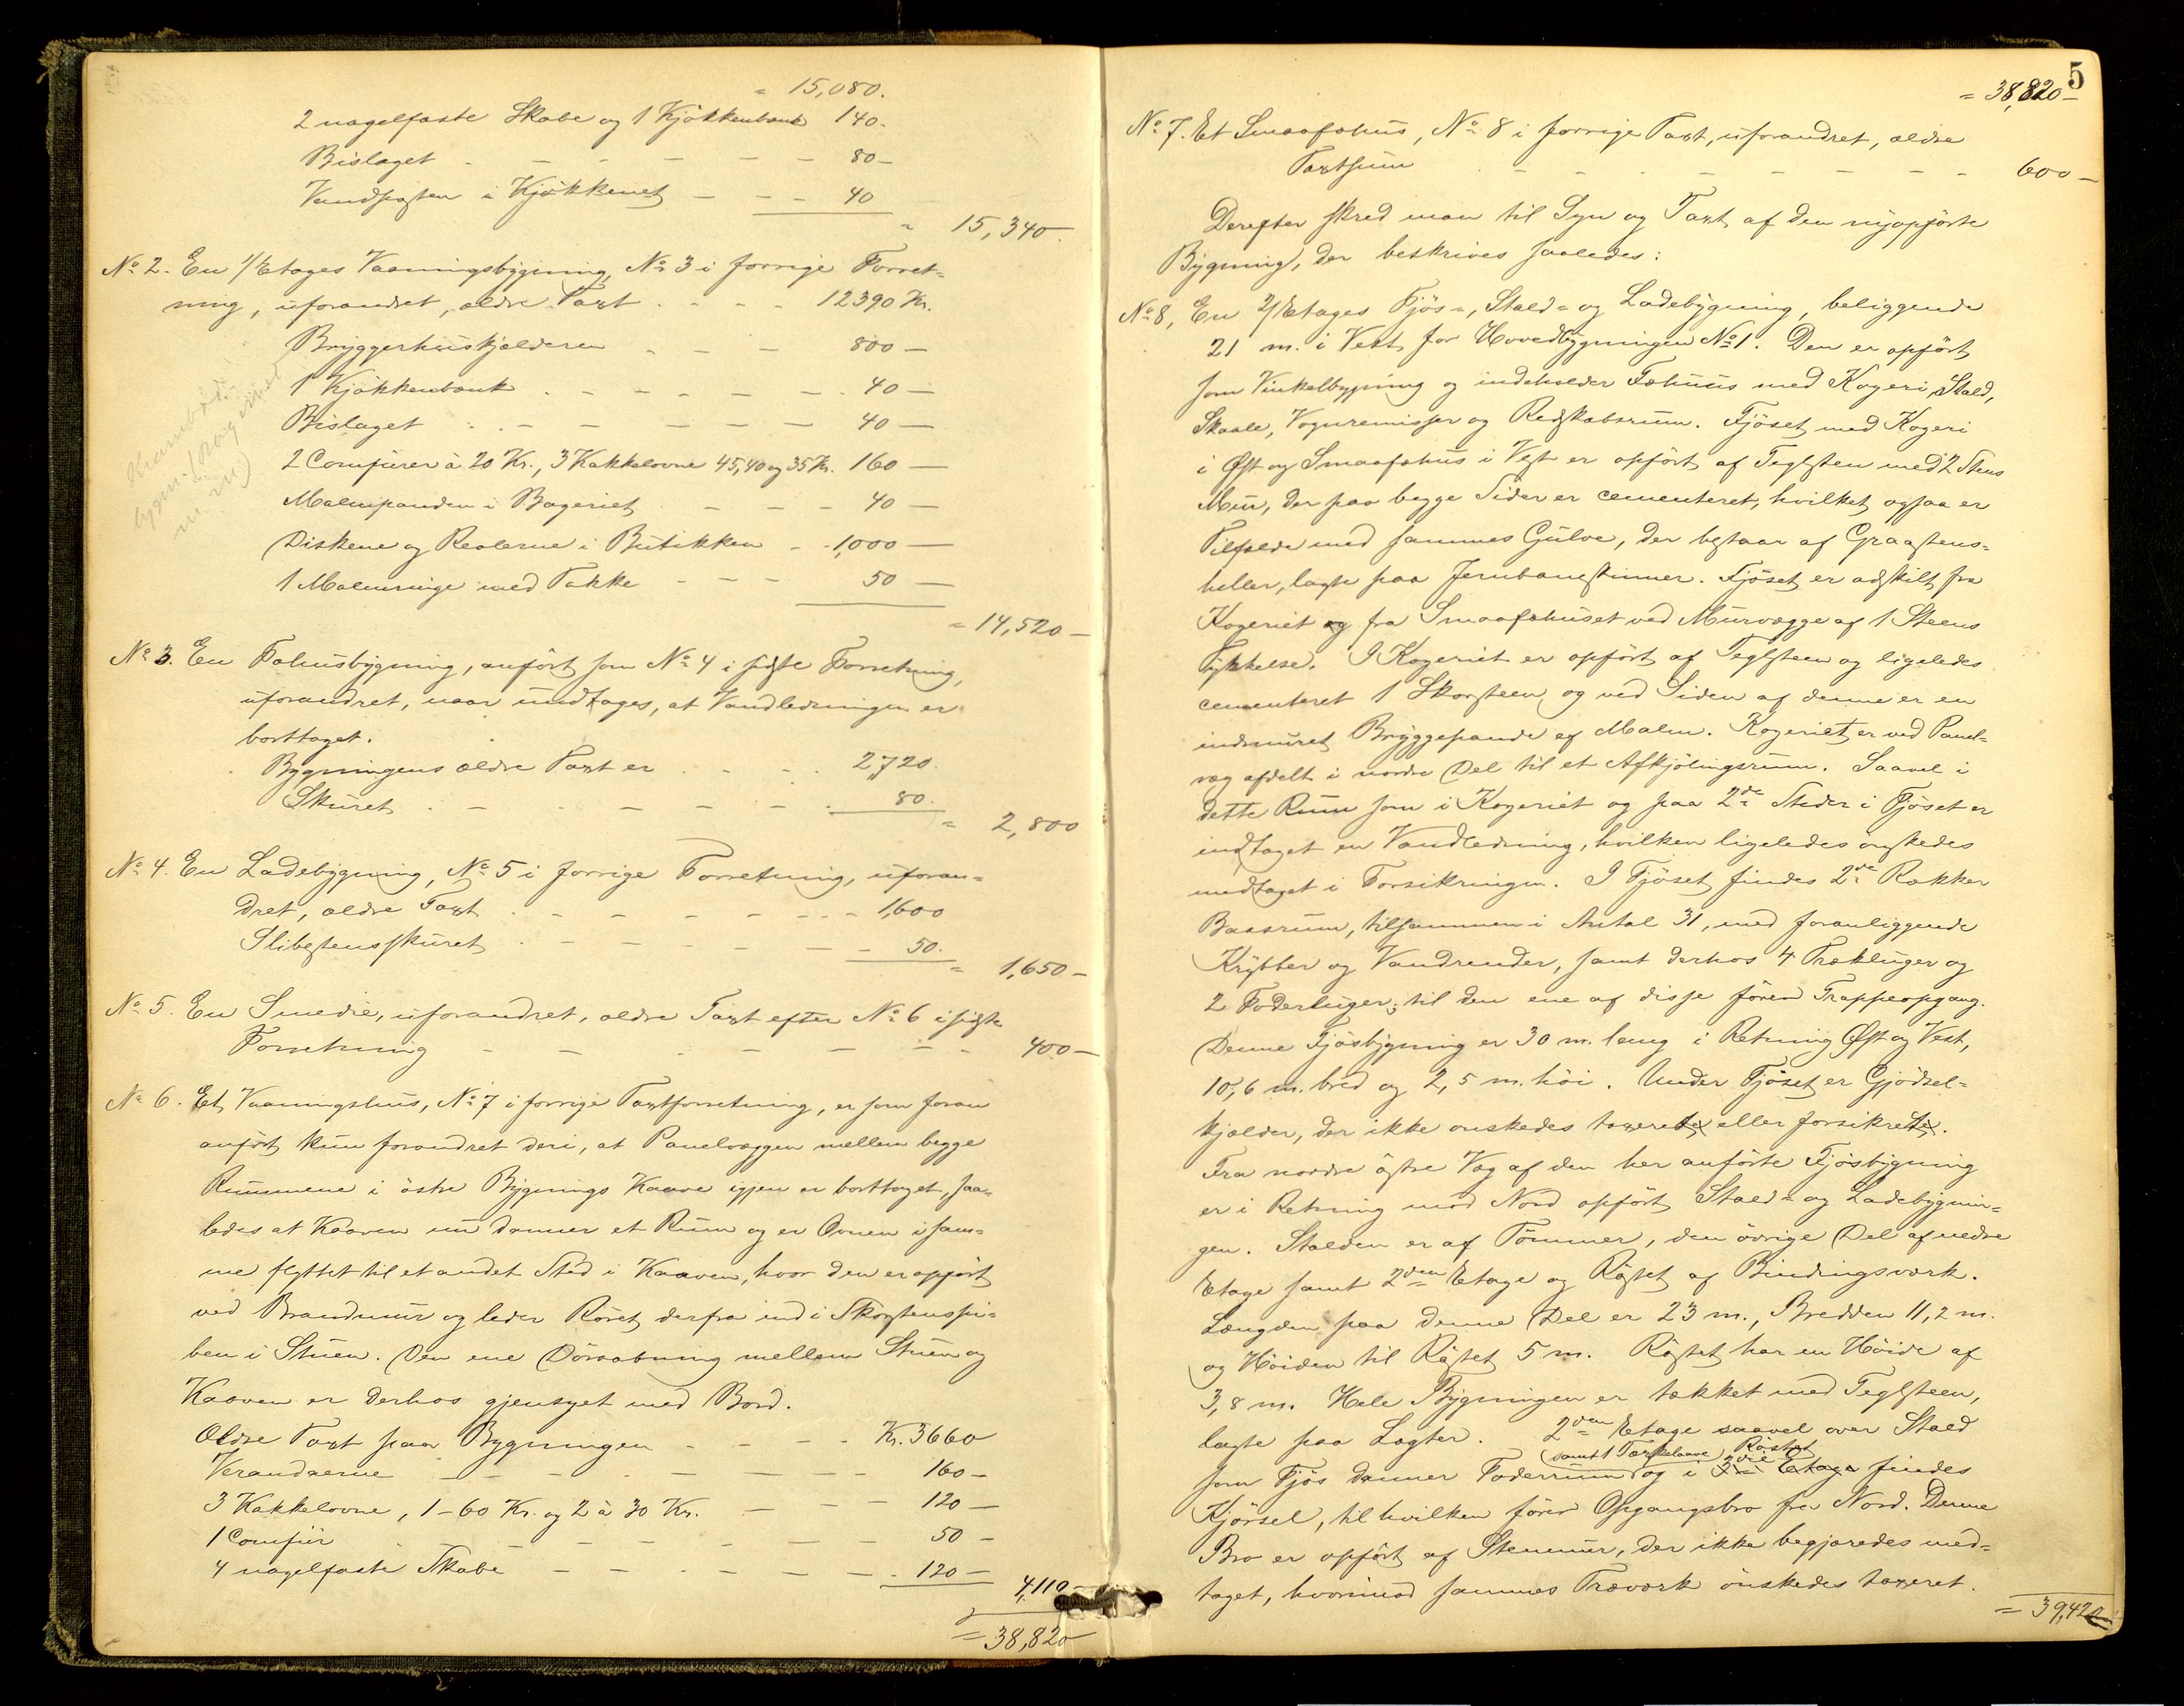 = 15,080.
2 nagelfaste Skabe og 1 Kjøkkenbænk 140.
Bislaget - - - - - - 80 -
Vandposten i Kjøkkenet - - - 40
= 15,340.
No 2. En 1/Etages Vaaningsbygning, No 3 i forrige Forret-
ning, uforandret, ældre Taxt - - - 12390 Kr.
Bryggerhuskjælderen - - - 800 -
1 Kjøkkenbænk - - - - - 40 -
Bislaget - - - - - - 40 -
2 Comfurer à 20 Kr., 3 Kakkelovne 45, 40 og 35 Kr. 160 -
Malmpanden i Bageriet - - - 40 -
Diskene og Reolerne i Butikken - - 1,000 -
1 Malmringe med Takke - - - 50 -
= 14,520 -
No 3. En Føhusbygning, anført som No 4 i sidste Forretning,
uforandret, naar undtages, at Vandledningen er
borttaget.
Bygningens ældre Taxt er - - - 2720.
Skuret - - - - - - 80.
= 2,800
No 4. En Ladebygning, No 5 i forrige Forretning, uforan-
dret, ældre Taxt - - - - - - 1,600
Slibestensskuret - - - - - - 50.
= 1,650 -
No 5. En Smedie, uforandret, ældre Taxt efter No 6 i sidste
Forretning - - - - - - - 400 -
No 6. Et Vaaningshus, No 7 i forrige Taxtforretning, er som foran
anført kun forandret deri, at Panelvæggen mellem begge
Rummene i østre Bygnings Kaave igjen er borttaget, saa-
ledes at Kaaven nu danner et Rum og er Ovnen i sam-
me flyttet til et andet Sted i Kaaven, hvor den er opført
ved Brandmur og leder Røret derfra ind i Skorstenspi-
ben i Stuen. Den ene Døraabning mellem Stuen og
Kaaven er derhos gjensyet med Bord.
Ældre Taxt paa Bygningen - - - - Kr. 3660
Verandaerne - - - - - - - 160 -
3 Kakkelovne, 1 - 60 Kr. og 2 à 30 Kr. - - - 120 -
1 Comfür - - - - - - - 50 -
4 nagelfaste Skabe - - - - - - 120 -
4,110 -
= 38,820
5
= 38,820 -
No 7. Et Smaaføhus, No 8 i forrige Taxt, uforandret, ældre
Taxtsum - - - - - - - - 600 -
Derefter skred man til Syn og Taxt af den nyopførte
Bygning, der beskrives saaledes:
No 8, En 2/Etages Fjøs-, Stald- og Ladebygning, beliggende
21 m. i Vest for Hovedbygningen No 1. Den er opført
som Vinkelbygning og indeholder Føhuus med Kogeri, Stald,
Skaale, Vognremisser og Redskabsrum. Fjøset med Kogeri
i Øst og Smaaføhus i Vest er opført af Teglsten med 2 Stens
Mur, der paa begge Sider er cementeret, hvilket ogsaa er
Tilfælde med sammes Gulve, der bestaar af Graastens-
heller, lagte paa Jernbaneskinner. Fjøset er adskilt fra
Kogeriet og fra Smaaføhuset ved Murvægge af 1 Steens
Tykkelse. I Kogeriet er opført af Teglsteen og ligeledes
cementeret 1 Skorsteen og ved Siden af denne er en
indmuret Bryggepande af Malm. Kogeriet er ved Panel-
væg afdelt i nordre Del til et Afkjølingsrum. Saavel i
dette Rum som i Kogeriet og paa 2de Steder i Fjøset er
indtaget en Vandledning, hvilken ligeledes ønskedes
medtaget i Forsikringen. I Fjøset findes 2de Rækker
Baasrum, tilsammen i Antal 31, med foranliggende
Krybber og Vandrender, samt derhos 4 Trækluger og
2 Foderluger; til den ene af disse fører Trappeopgang.
Denne Fjøsbygning er 30 m. lang i Retning Øst og Vest,
10,6 m. bred og 2,5 m. høi. Under Fjøset er Gjødsel-
kjælder, der ikke ønskedes taxeret eller forsikret.
Fra nordre østre Væg af den her anførte Fjøsbygning
er i Retning mod Nord opført Stald- og Ladebygnin-
gen. Stalden er af Tømmer, den øvrige Del af nedre
Etage samt 2den Etage og Røstet af Bindingsværk.
Længden paa denne Del er 23 m., Bredden 11,2 m.
og Høiden til Røstet 5 m. Røstet har en Høide af
3,8 m. Hele Bygningen er tækket med Teglsteen,
lagte paa Lægter. 2den Etage saavel over Stald
samt 1 Tærskelaave Røstet
som Fjøs danner Foderrum og i 3die Etage findes
Kjørsel, til hvilken fører Opgangsbro fra Nord. Denne
Bro er opført af Stenmur, der ikke begjæredes med-
taget, hvorimod sammes Træværk ønskedes taxeret.
= 39,420